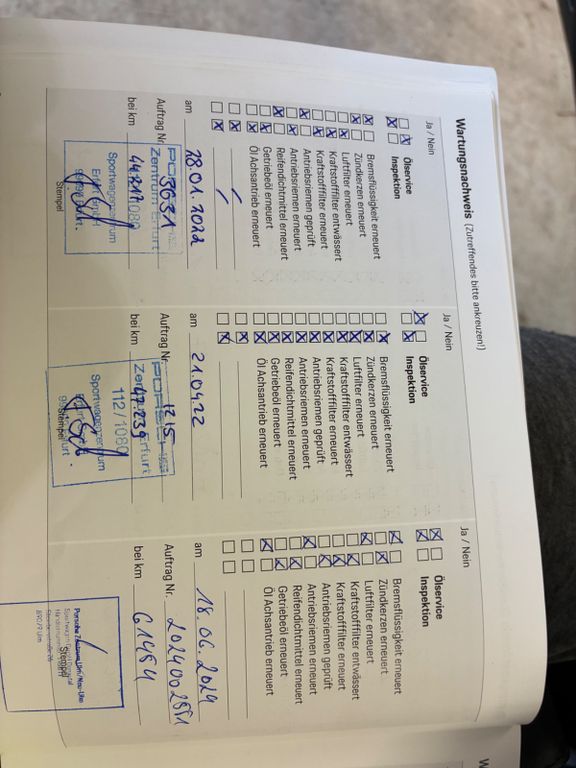 Wartungsnachweis (Zutreffendes bitte ankreuzen!)
Ja / Nein
Ölservice
Inspektion
Bremsflüssigkeit erneuert
Zündkerzen erneuert
Luftfilter erneuert
Kraftstofffilter entwässert
Kraftstofffilter erneuert
Antriebsriemen geprüft
Antriebsriemen erneuert
Reifendichtmittel erneuert
Getriebeöl erneuert
Öl Achsantrieb erneuert
am 18.01.2022
Auftrag Nr.
Zentrum Erfurt
bei km
Sportwagenzentrum
Stempel
Ja / Nein
Ölservice
Inspektion
Bremsflüssigkeit erneuert
Zündkerzen erneuert
Luftfilter erneuert
Kraftstofffilter entwässert
Kraftstofffilter erneuert
Antriebsriemen geprüft
Antriebsriemen erneuert
Reifendichtmittel erneuert
Getriebeöl erneuert
Öl Achsantrieb erneuert
am 21.04.22
Auftrag Nr. 1215
bei km 47.239
112/1089
Sportwagenzentrum
Stempel
Ja / Nein
Ölservice
Inspektion
Bremsflüssigkeit erneuert
Zündkerzen erneuert
Luftfilter erneuert
Kraftstofffilter entwässert
Kraftstofffilter erneuert
Antriebsriemen geprüft
Antriebsriemen erneuert
Reifendichtmittel erneuert
Getriebeöl erneuert
Öl Achsantrieb erneuert
am 18.06.2024
Auftrag Nr.
bei km 61484
Porsche Zentrum Ulm/Neu-Ulm
Stempel
89079 Ulm
W